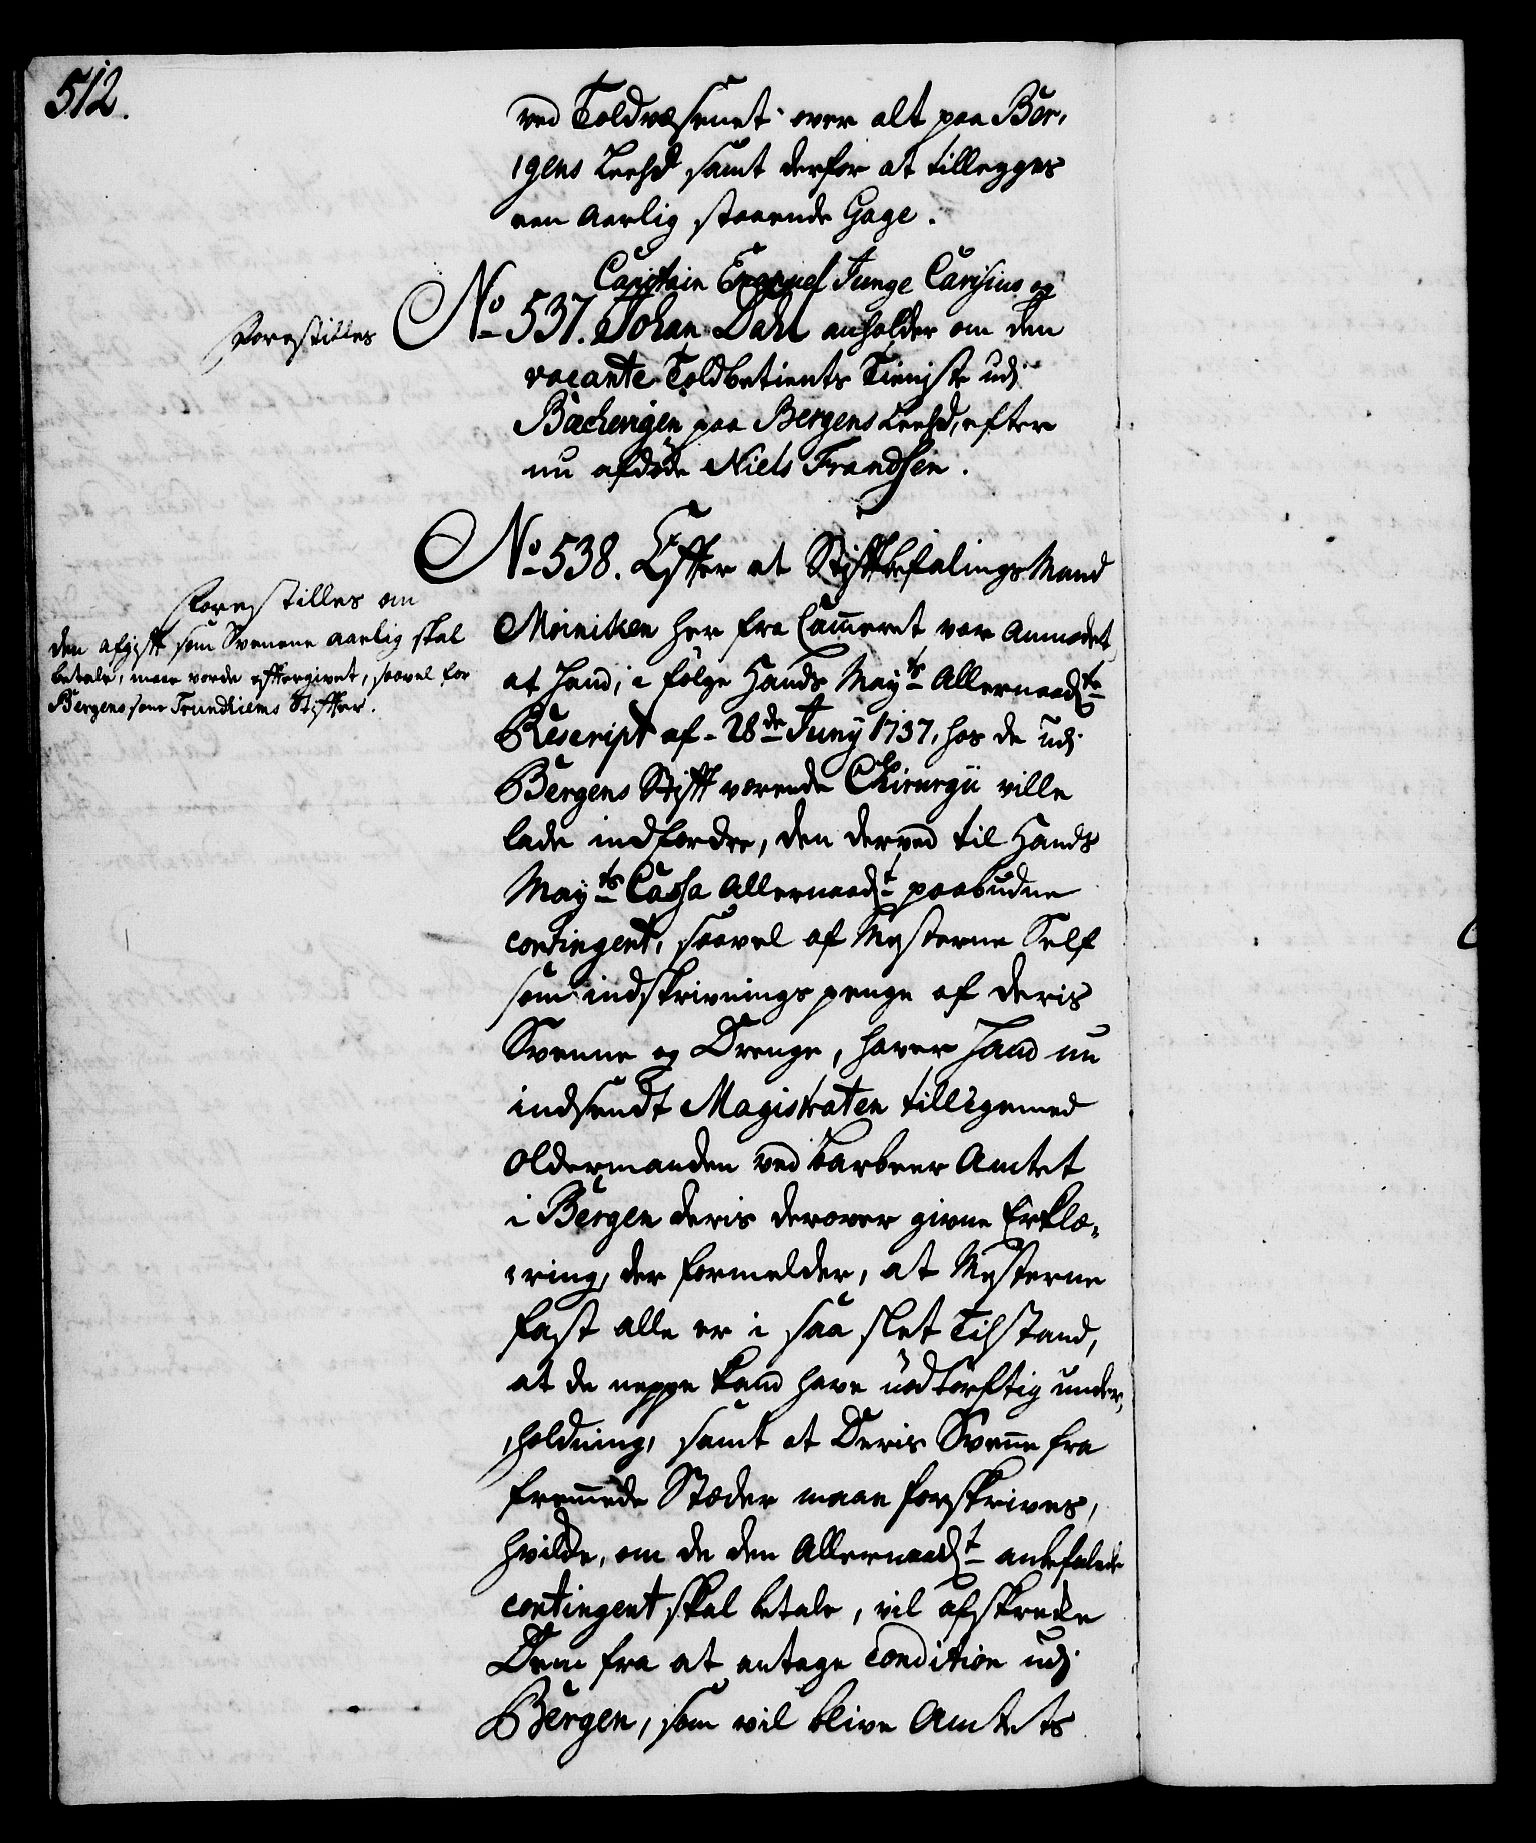 512.
ved Toldvæsenet over alt paa Ber,
,gens Leehd samt derfor at tillegges
een Aarlig staaende Gage.
Capitain Junge Carisius og
Forestilles
No 537. Johan Dahl anholder om den
vacante Toldbetients Tieniste udj
Bachevigen paa Bergens Leehd, efter
nu afdøde Niels Frandsen.
No 538. Efter at Stiftbefalings Mand
Forestilles om
den afgift som Svenene aarlig skal
betale, maae vorde efftergivet, saavel for
Bergens som Trundhiems Stiffter.
Møiniken her fra Cam̅eret var Anmodet,
at Hand, i følge Hands Mayts Allernaadste
Rescript af 28de Junÿ 1737, hos de udj
Bergens Stift værende Chirurgii ville
lade indfordre, den derved til Hands
Mayts Cassa Allernaadst paabudne
contingent, saavel af Mesterne Self
som indskrivnings penge af deris
Svenne og Drenge, haver Hand nu
indsendt Magistraten tilligemed
Oldermanden ved Barbeer Amtet
i Bergen deris derover givne Erklæ,
,ring, der formelder, at Mesterne
fast alle er i saa slet Tilstand,
at de neppe kand have nødtørftig under,
,holdning, samt at Deris Sven̅e fra
frem̅ede Stæder maae forskrives,
hvilke, om de den Allernaadst anbefalede
contingent skal betale, vil afskrekke
Dem fra at antage condition udj
Bergen, som vil blive Amtets